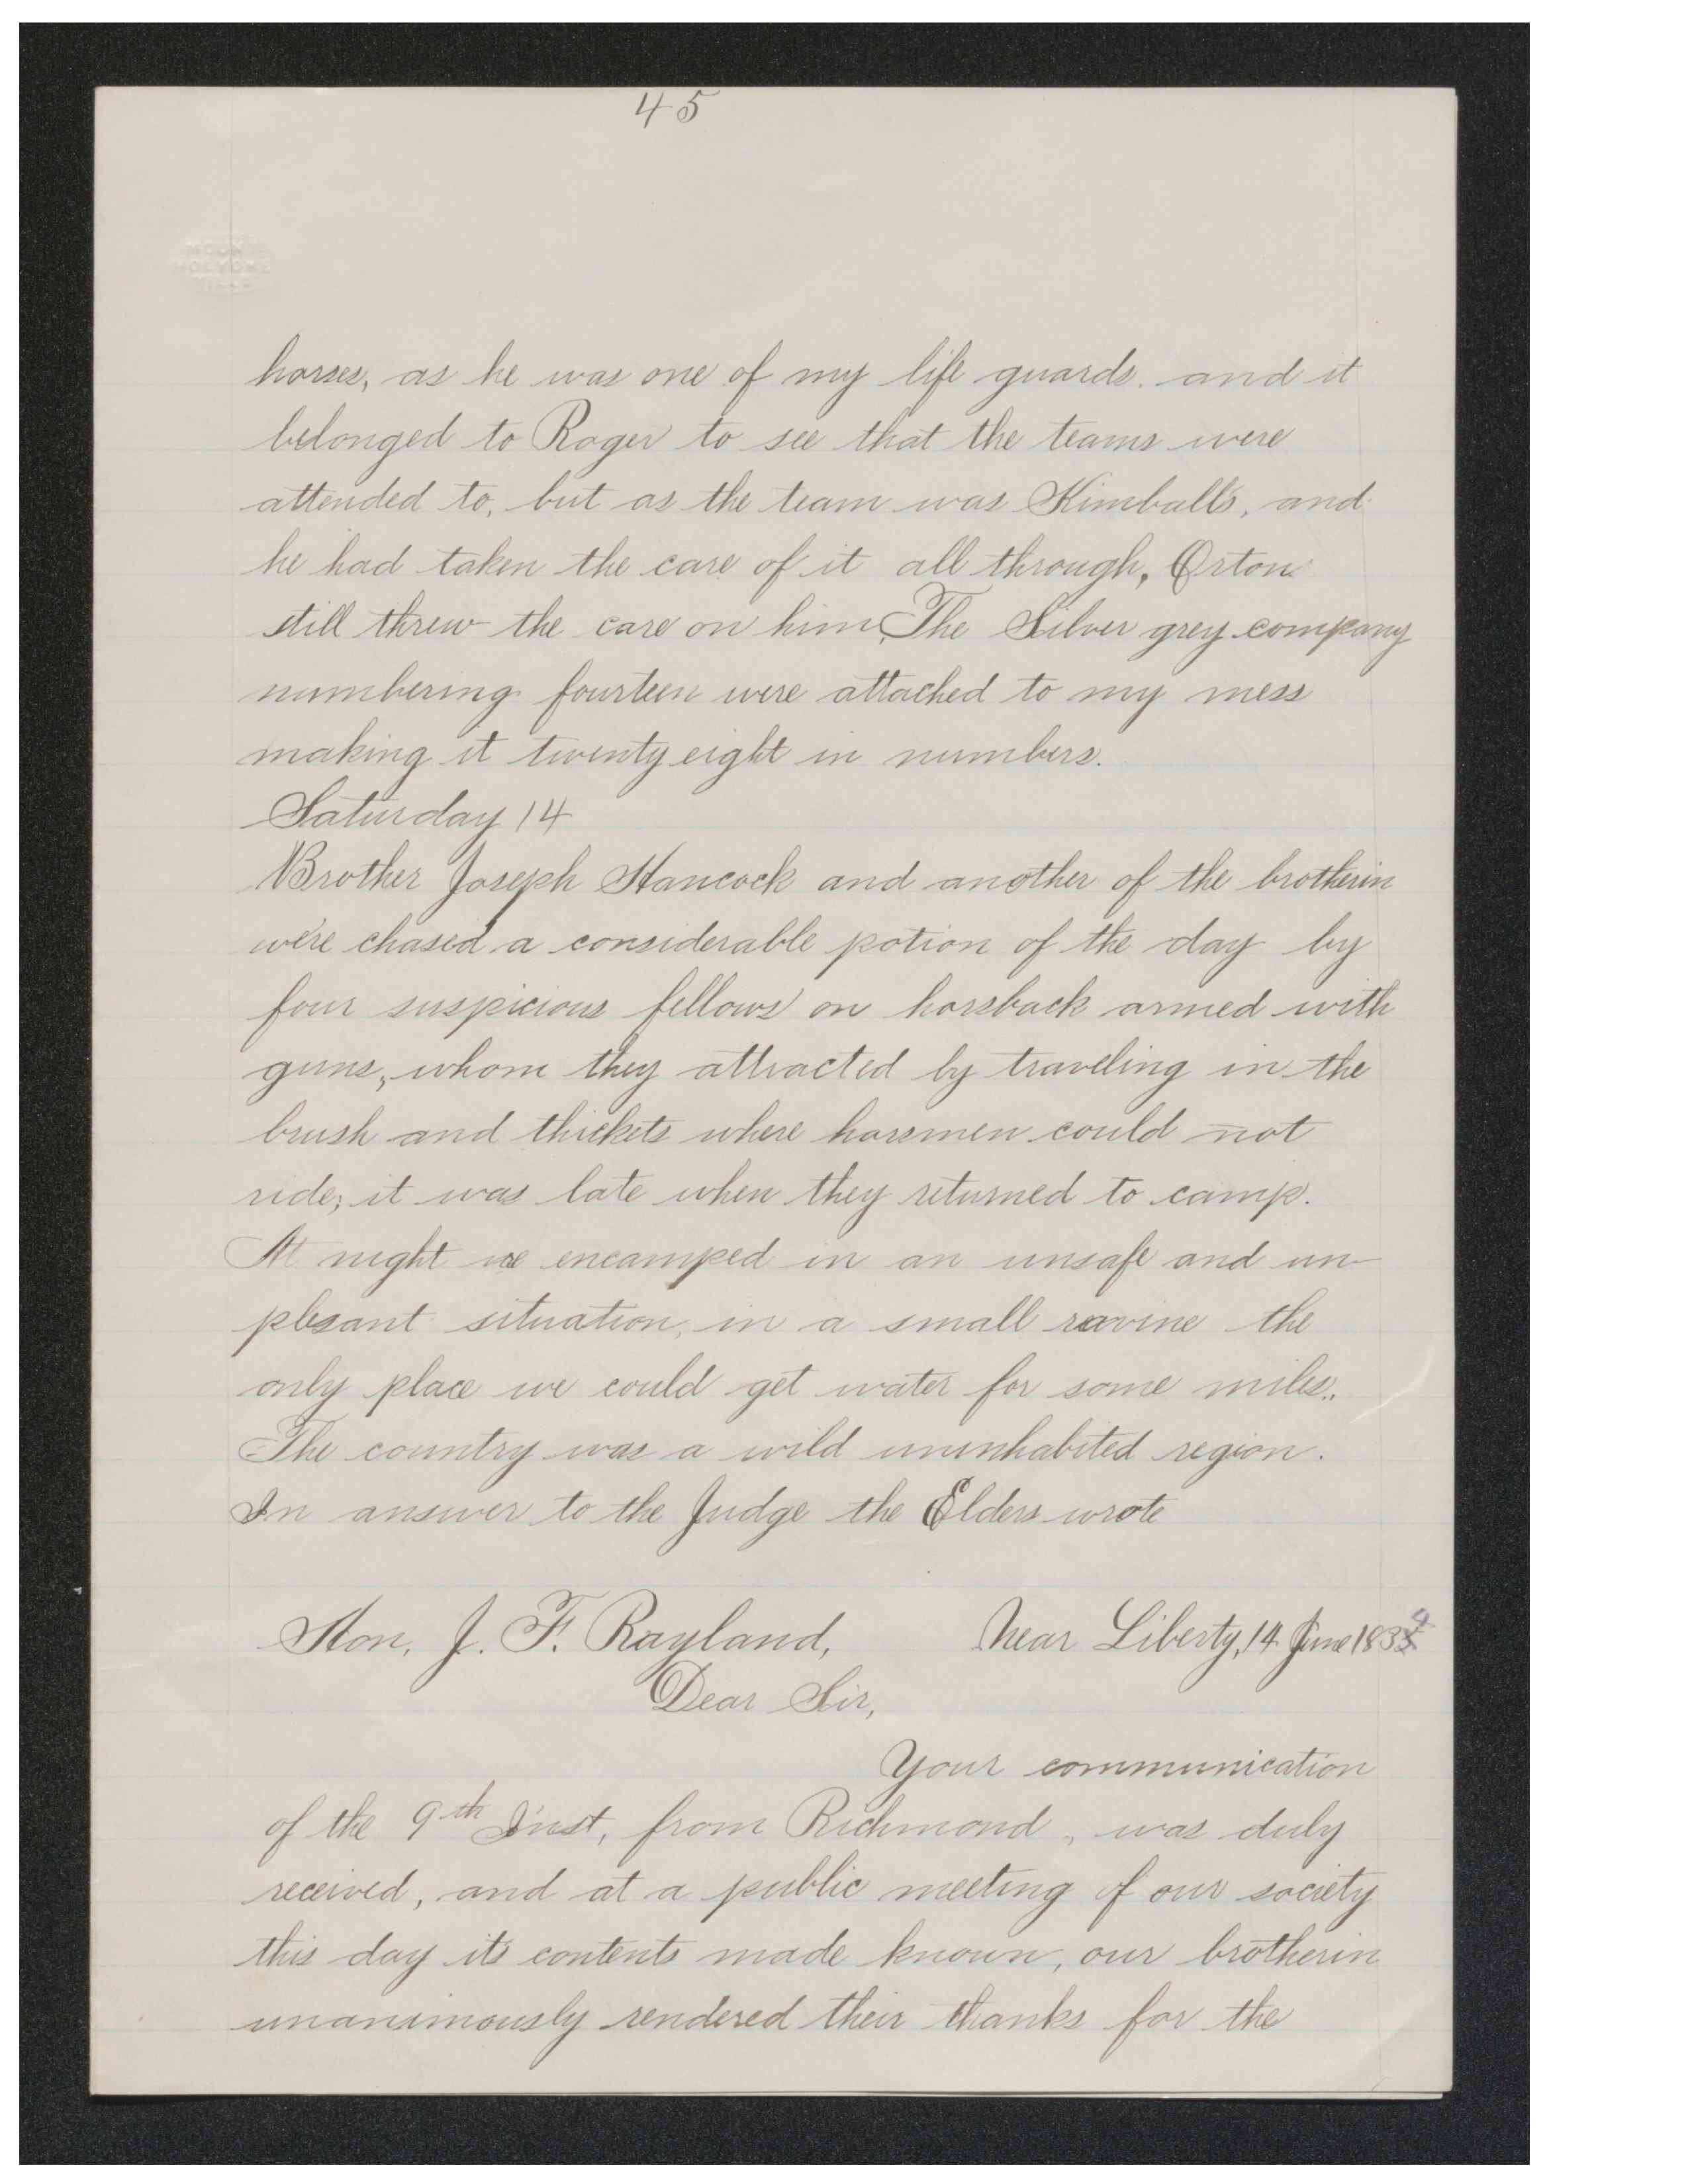 45
horses, as he was one of my life guards. and it
belonged to Roger to see that the teams were
attended to, but as the team was Kimball's, and
he had taken the care of it all through, Orton
still threw the care on him, The Silver grey company
numbering fourteen were attached to my mess
making it twenty eight in numbers.
Saturday 14
Brother Joseph Hancock and another of the brotherin
were chased a considerable potion of the day by
four suspicious fellows on horsback armed with
guns, whom they attracted by traveling in the
brush and thickets where horsmen could not
ride; it was late when they returned to camp.
At night we encamped in an unsafe and un-
plesant situation, in a small ravine the
only place we could get water for some miles.
The country was a wild uninhabited region.
In answer to the Judge the Elders wrote
Near Liberty, 14 June 1834
Hon. J. F. Rayland,
Dear Sir,
Your communication
of the 9th Inst, from Richmond, was duly
received, and at a public meeting of our society
this day its contents made known, our brotherin
unanimously rendered their thanks for the